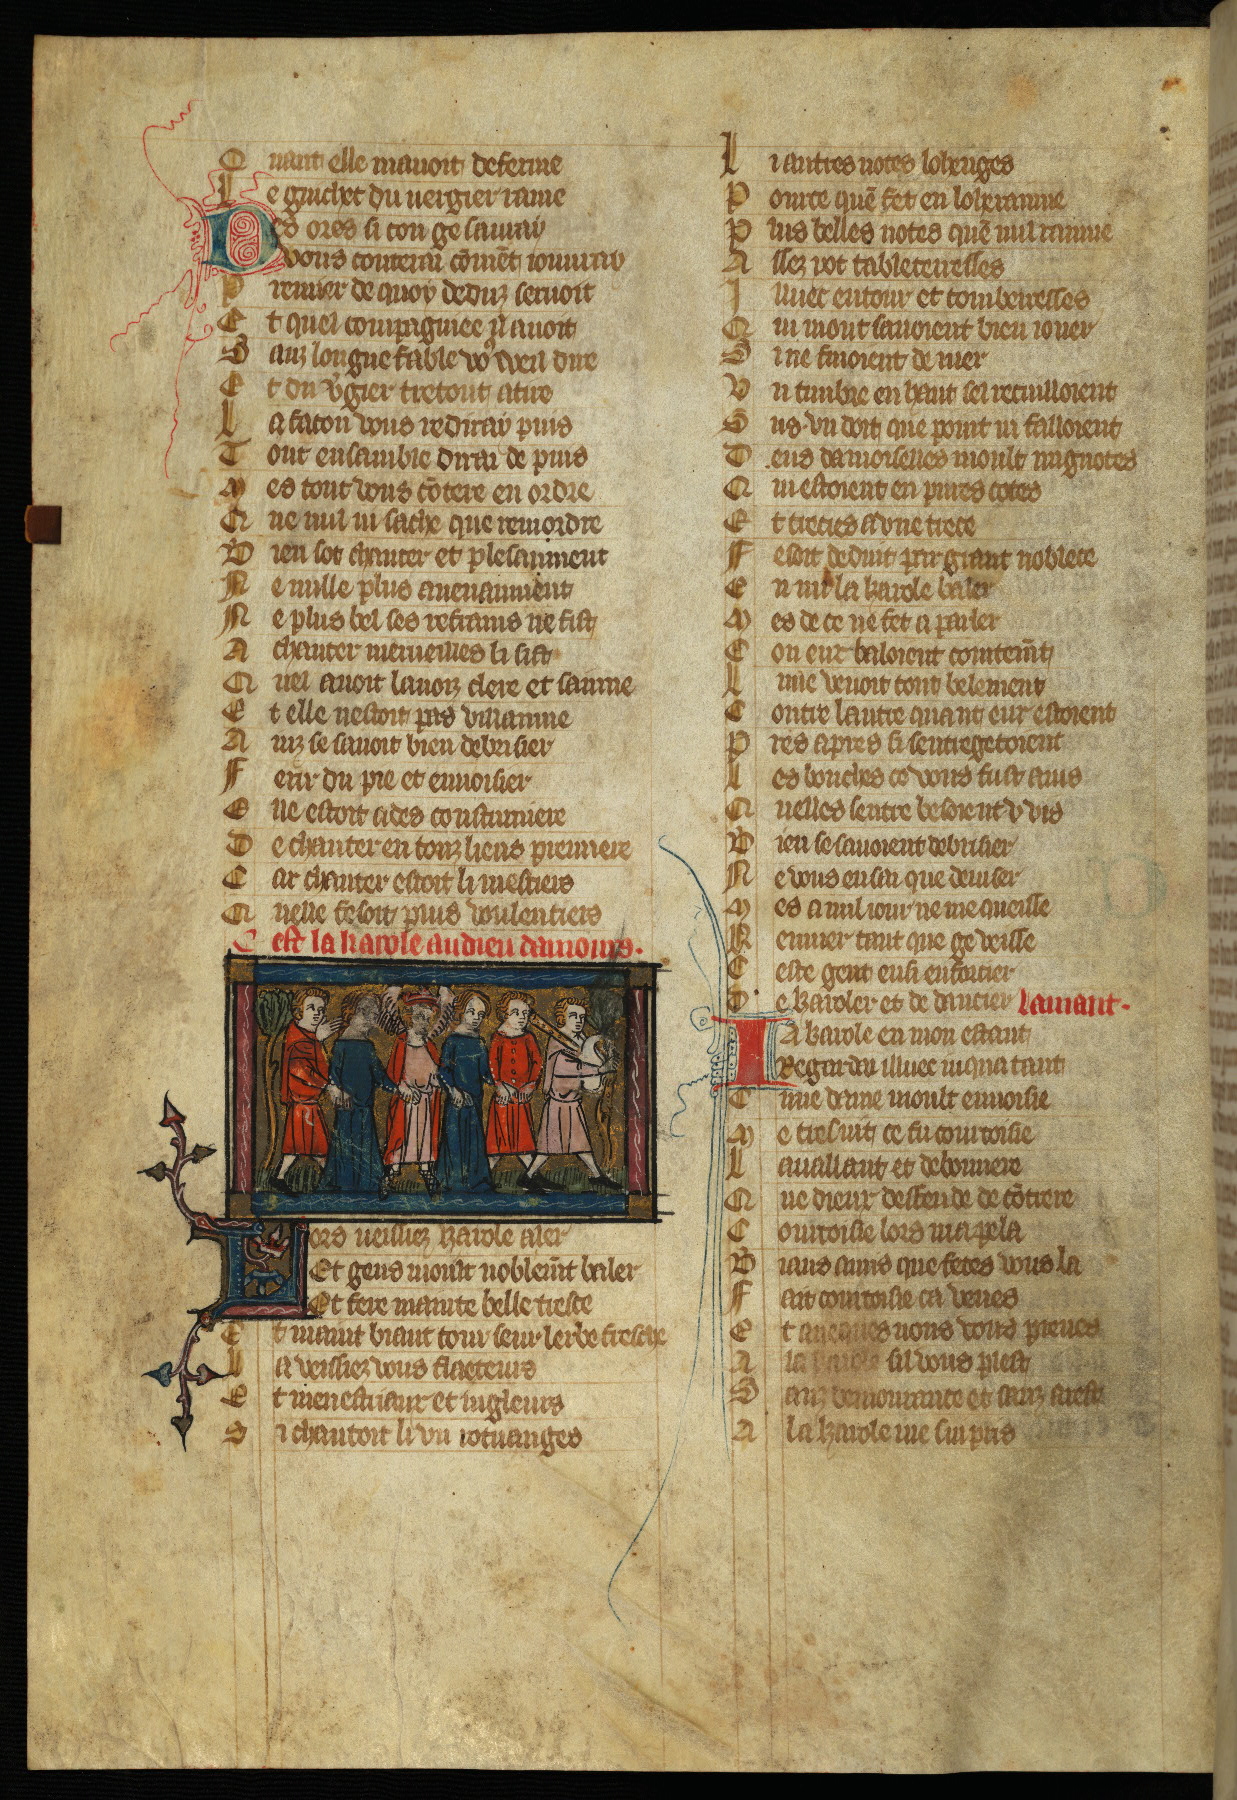 Quant elle mavoit deferme
Le guichet du vergier rame
Des ores si con ge sauray
Vous conterai cõmẽt iouuray
Premier de quoy deduiz seruoit
Et quel compaignee il auoit
Sanz longue fable voꝰ veil dire
Et du vꝰgier tretout atire
La facon vous rediray puis
Tout ensamble dirai de puis
Mes tout vous cõtere en ordre
Que nul ni sache que remordre
Bien sot chanter et plesanment
Ne nulle plus auenanment
Ne plus bel ses refrains ne fist
A chanter merueilles li sist
Quel auoit la uoiz clere et sainne
Et elle nestoit pas vilainne
Ainz se sauoit bien debrisier
Ferir du pie et enuoisier
Elle estoit ades coustumiere
De chanter en touz liens premiere
Car chanter estoit li mestiers
Quelle fesoit plus voulentiers
Cest la karole au dieu damours.
Lors veissiez karole aler
Et gens moult noblemẽt baler
Et fere mainte belle tresce
Et maint biau tour seur lerbe fresche
La veissiez vous flaeteurs
Et menestriaux et iugleurs
Si chantoit li vn rotuanges
Li autres notes loherages
Pource quẽ fet en loherainne
Plus belles notes quẽ nul rainne
Assez yot tableteresses
Illuec entour et tomberesses
Qui mout sauoient bien iouer
Si ne finoient de ruer
Vn timbre en haut sel recuilloient
Sus vn doit que point ni falloient
Deus damoiselles moult mignotes
Qui estoient en pures cotes
Et treciees a vne trece
Fesoit deduit par grant noblece
En mi la karole baler
Mes de ce ne fet a parler
Con eux baloient cointemẽt
Lune venoit tout belement
Contre lautre quant eux estoient
Pres apres si sentregetoient
Les bouches ce vous fust auis
Quelles sentre besoient v vis
Bien se sauoient debrisier
Ne vous en sai que deuiser
Mes a nul iour ne me queisse
Remuer tant que ge veisse
Ceste gent ensi enforcier
De karoler et de dancier Lamant.
La karole en mon estant
Regardai illuec iusqua tant
Cune dame moult enuoisie
Me tresuit ce fu courtoisie
La uaillant et debonnere
Que dieux deffende de cõtrere
Courtoisie lors mapela
Biaus amis que fetes vous la
Fait courtoisie ca venes
Et auecques nous vous prenes
A la karole sil vous plest
Sanz demourance et sanz arest
A la karole me sui pris